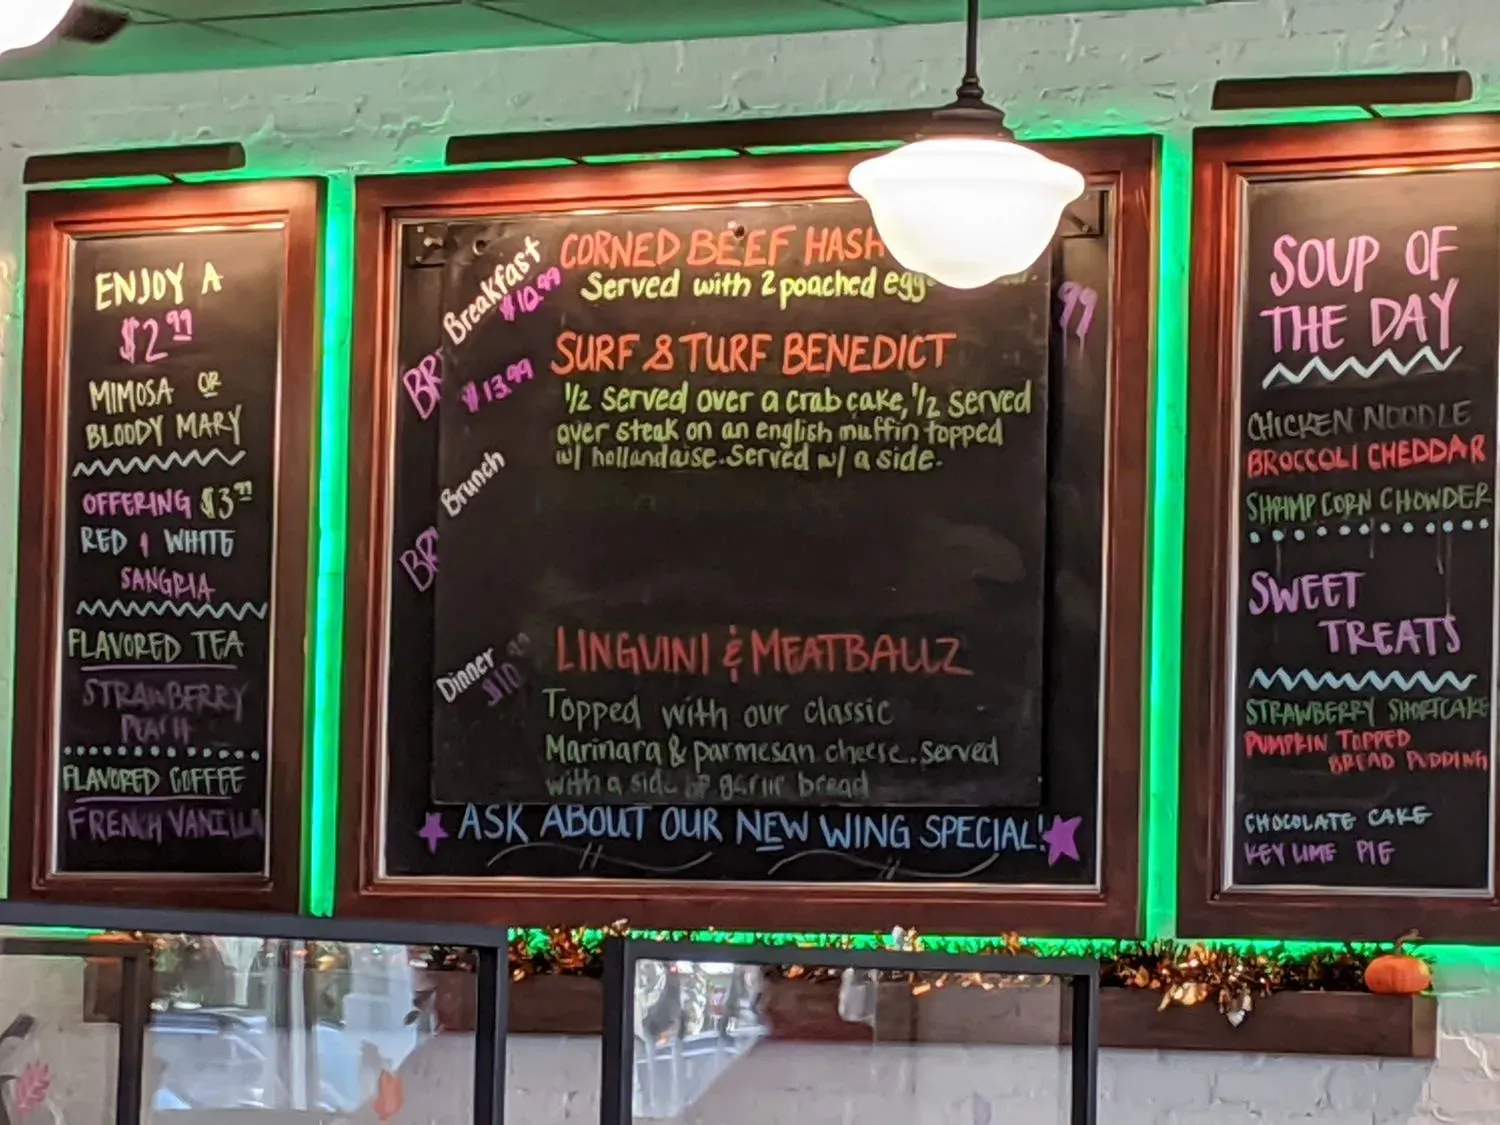 ENJOY A
$2.99
MIMOSA OR
BLOODY MARY
OFFERING $3.99
RED & WHITE
SANGRIA
FLAVORED TEA
STRAWBERRY
PEACH
FLAVORED COFFEE
FRENCH VANILLA
Breakfast
$10.99
CORNED BEEF HASH
Served with 2 poached
99
BR
$13.99
SURF & TURF BENEDICT
1/2 served over a crab cake, 1/2 served
over steak on an english muffin topped
w/ hollandaise. Served w/ a side.
Brunch
BR
Dinner
LINGUINI & MEATBALLZ
Topped with our classic
Marinara & parmesan cheese. Served
with a side of garlic bread
ASK ABOUT OUR NEW WING SPECIAL!
SOUP OF
THE DAY
CHICKEN NOODLE
BROCCOLI CHEDDAR
SHRIMP CORN CHOWDER
SWEET
TREATS
STRAWBERRY SHORTCAKE
PUMPKIN TOPPED
BREAD PUDDING
CHOCOLATE CAKE
KEY LIME PIE